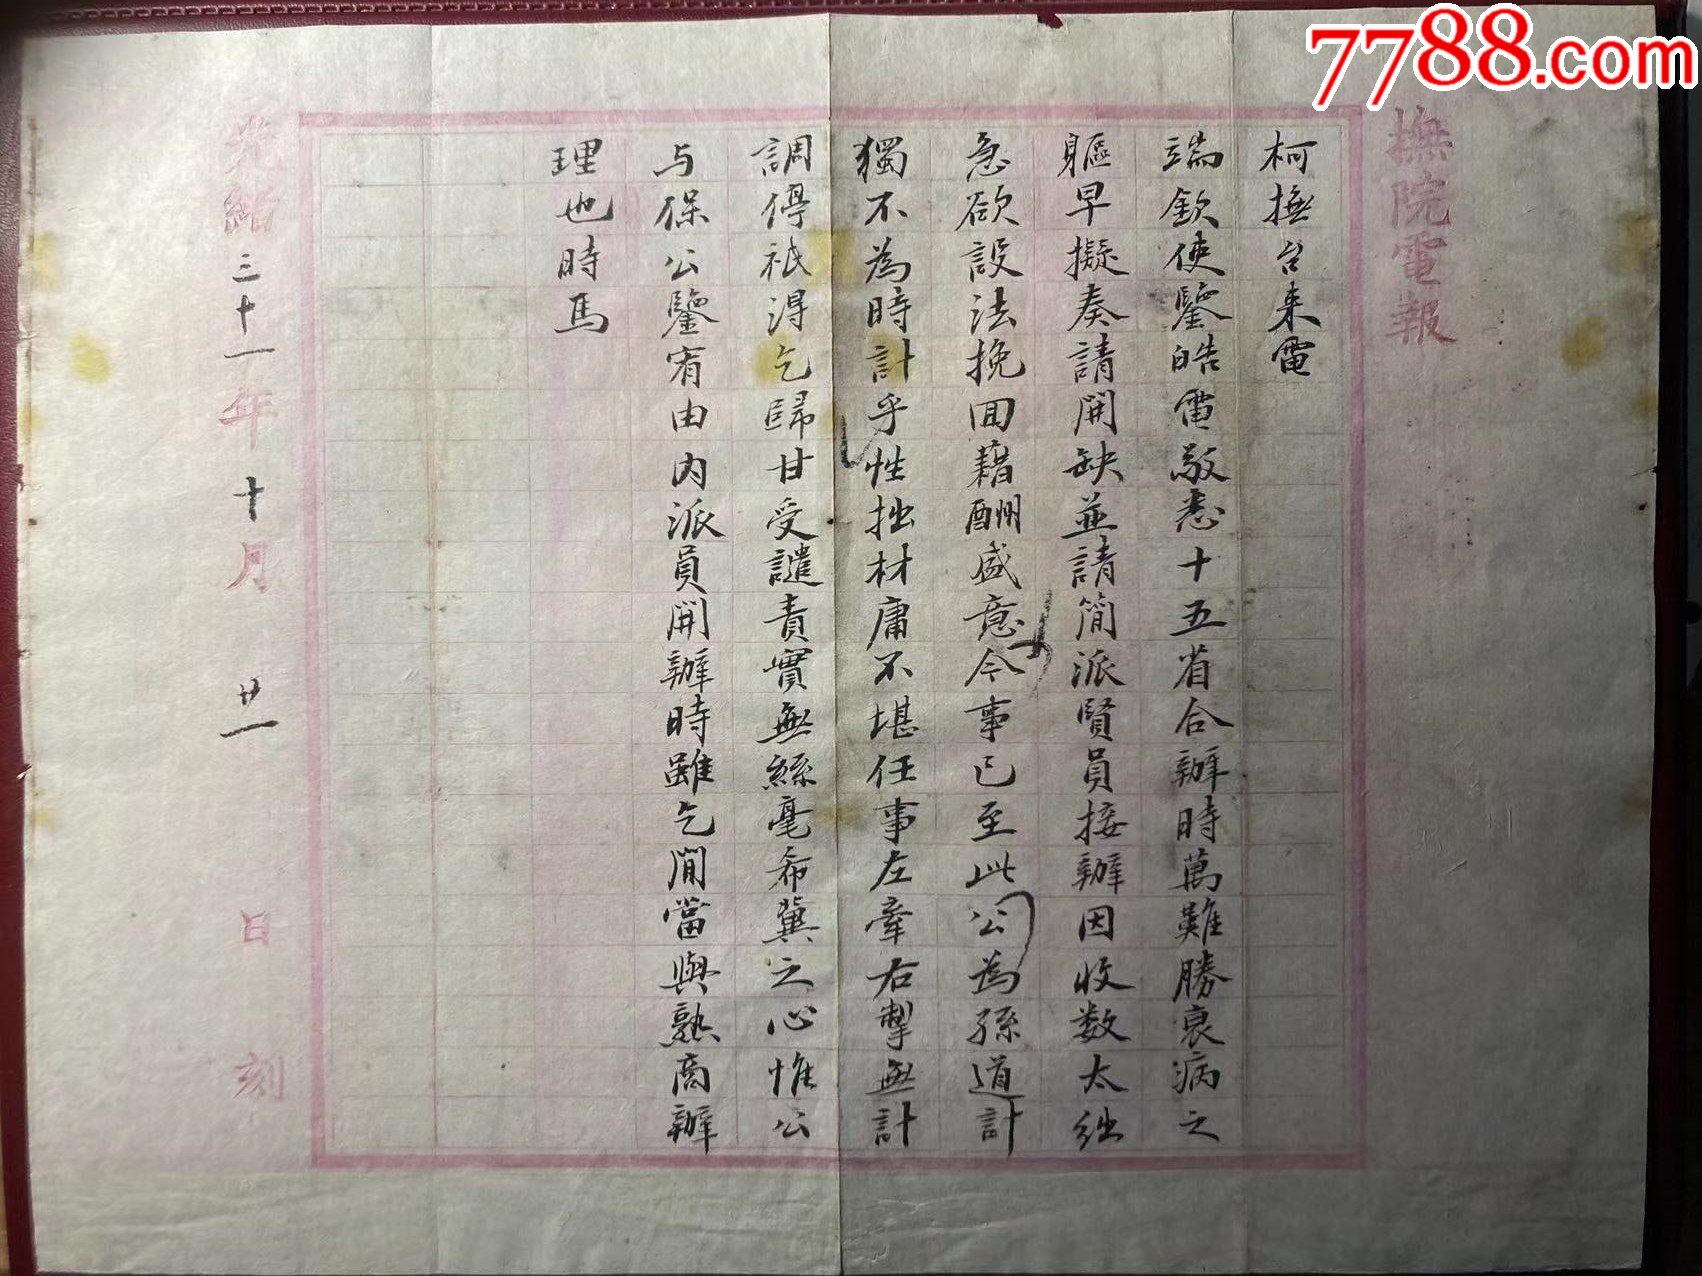 7788.com
撫院電報
柯撫台来電
端欽使鑒皓電敬悉十五省合辦時萬難勝衰病之
軀早擬奏請開缺並請簡派賢員接辦因收数太絀
急欲設法挽回藉酬盛意今事已至此公為孫道計
獨不為時計乎性拙材庸不堪任事左牽右掣無計
調停祇得乞歸甘受譴責實無絲毫希冀之心惟公
与保公鑒宥由内派員開辦時雖乞閒當與熟商辦
理也時馬
光緒三十一年十月廿一日刻